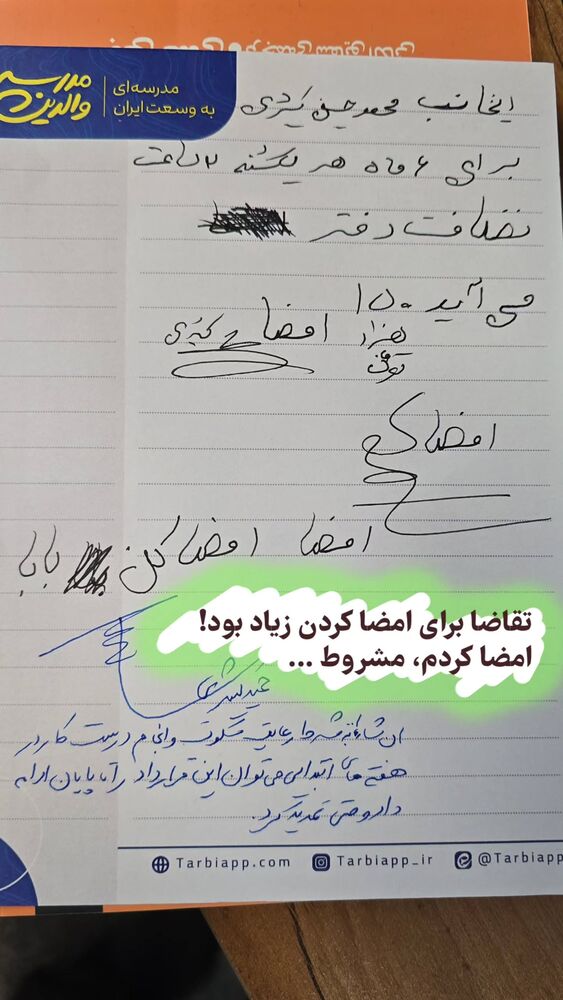 مدرسه والدین
مدرسه‌ای
به وسعت ایران
اینجانب محمدحسین کبدی
برای ۶ ماه هر یکشنبه ۲ ساعت
نضافت دفتر
می آید ۱۵۰
هزار
تومان
امضا
امضا
امضا امضا کن بابا
تقاضا برای امضا کردن زیاد بود!
امضا کردم، مشروط ...
ان شاءالله به شرط رعایت سکوت و انجام درست کار در
هفته های ابتدایی می توان این قرارداد را تا پایان ادامه
داد و حتی تمدید کرد.
Tarbiapp.com
Tarbiapp_ir
@Tarbiapp